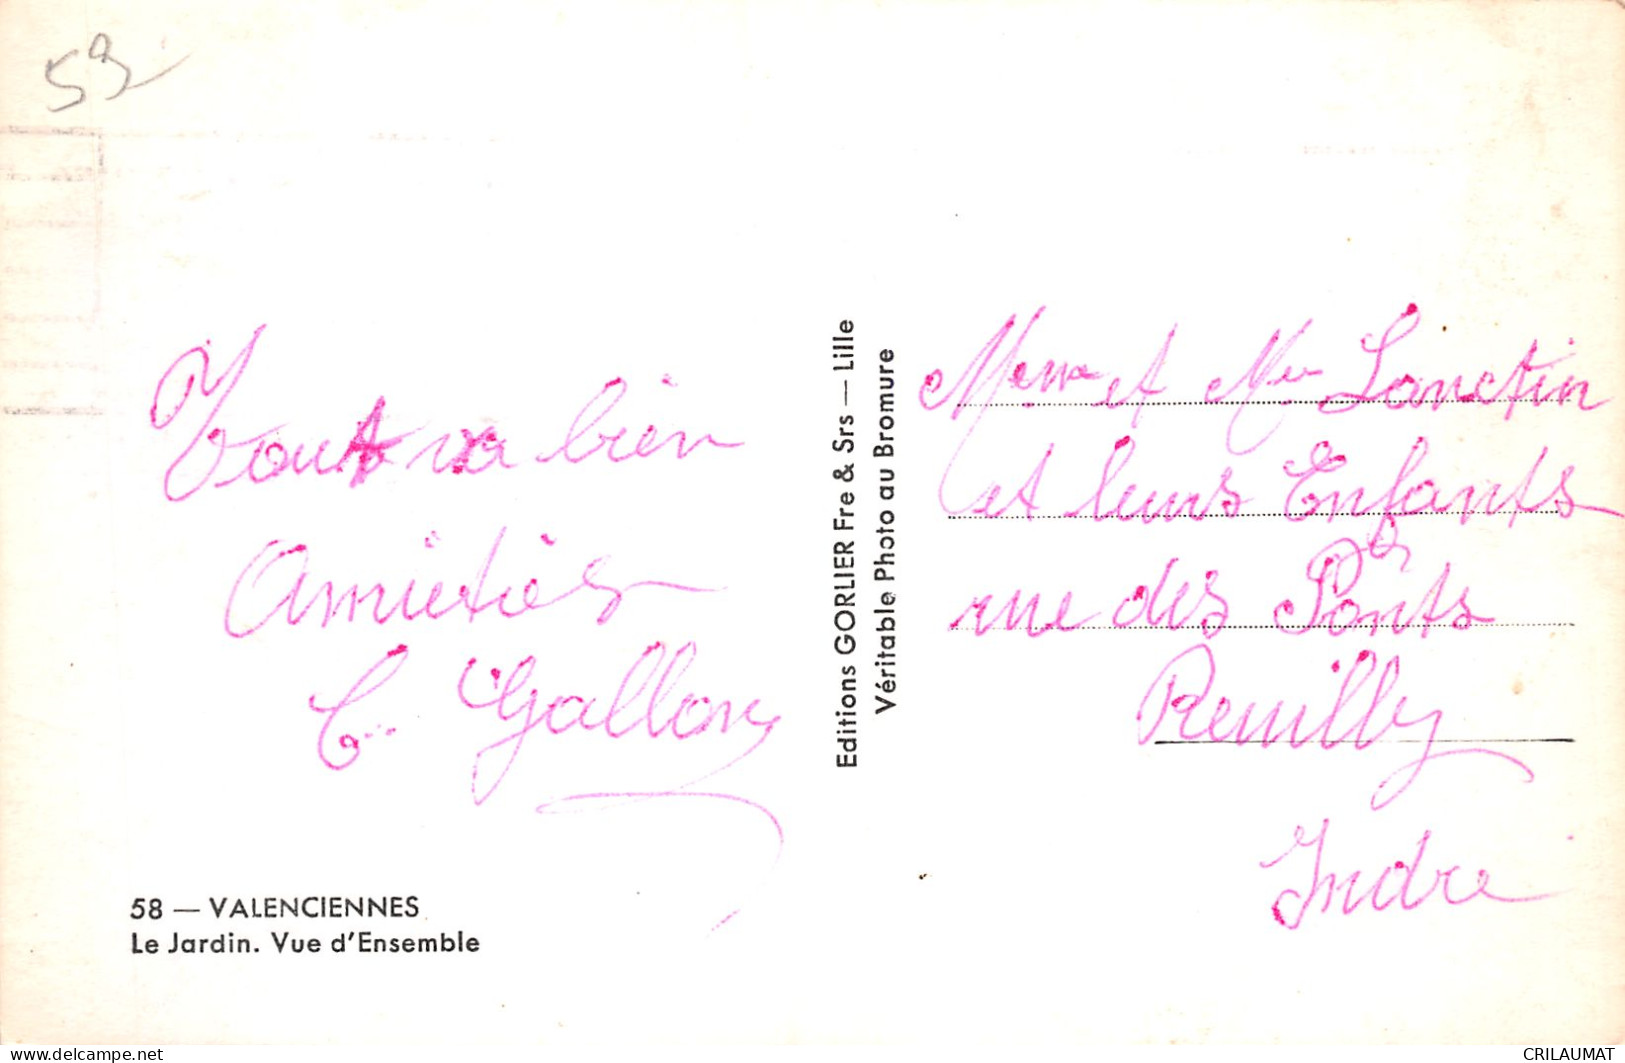 59
Tout va bien
Amitiés
G. Gallon
58 — VALENCIENNES
Le Jardin. Vue d'Ensemble
Editions GORLIER Fre & Srs — Lille
Véritable Photo au Bromure
et Lanctin
et leurs Enfants
rue des Ponts
Reuilly
Indre
www.delcampe.net
CRILAUMAT